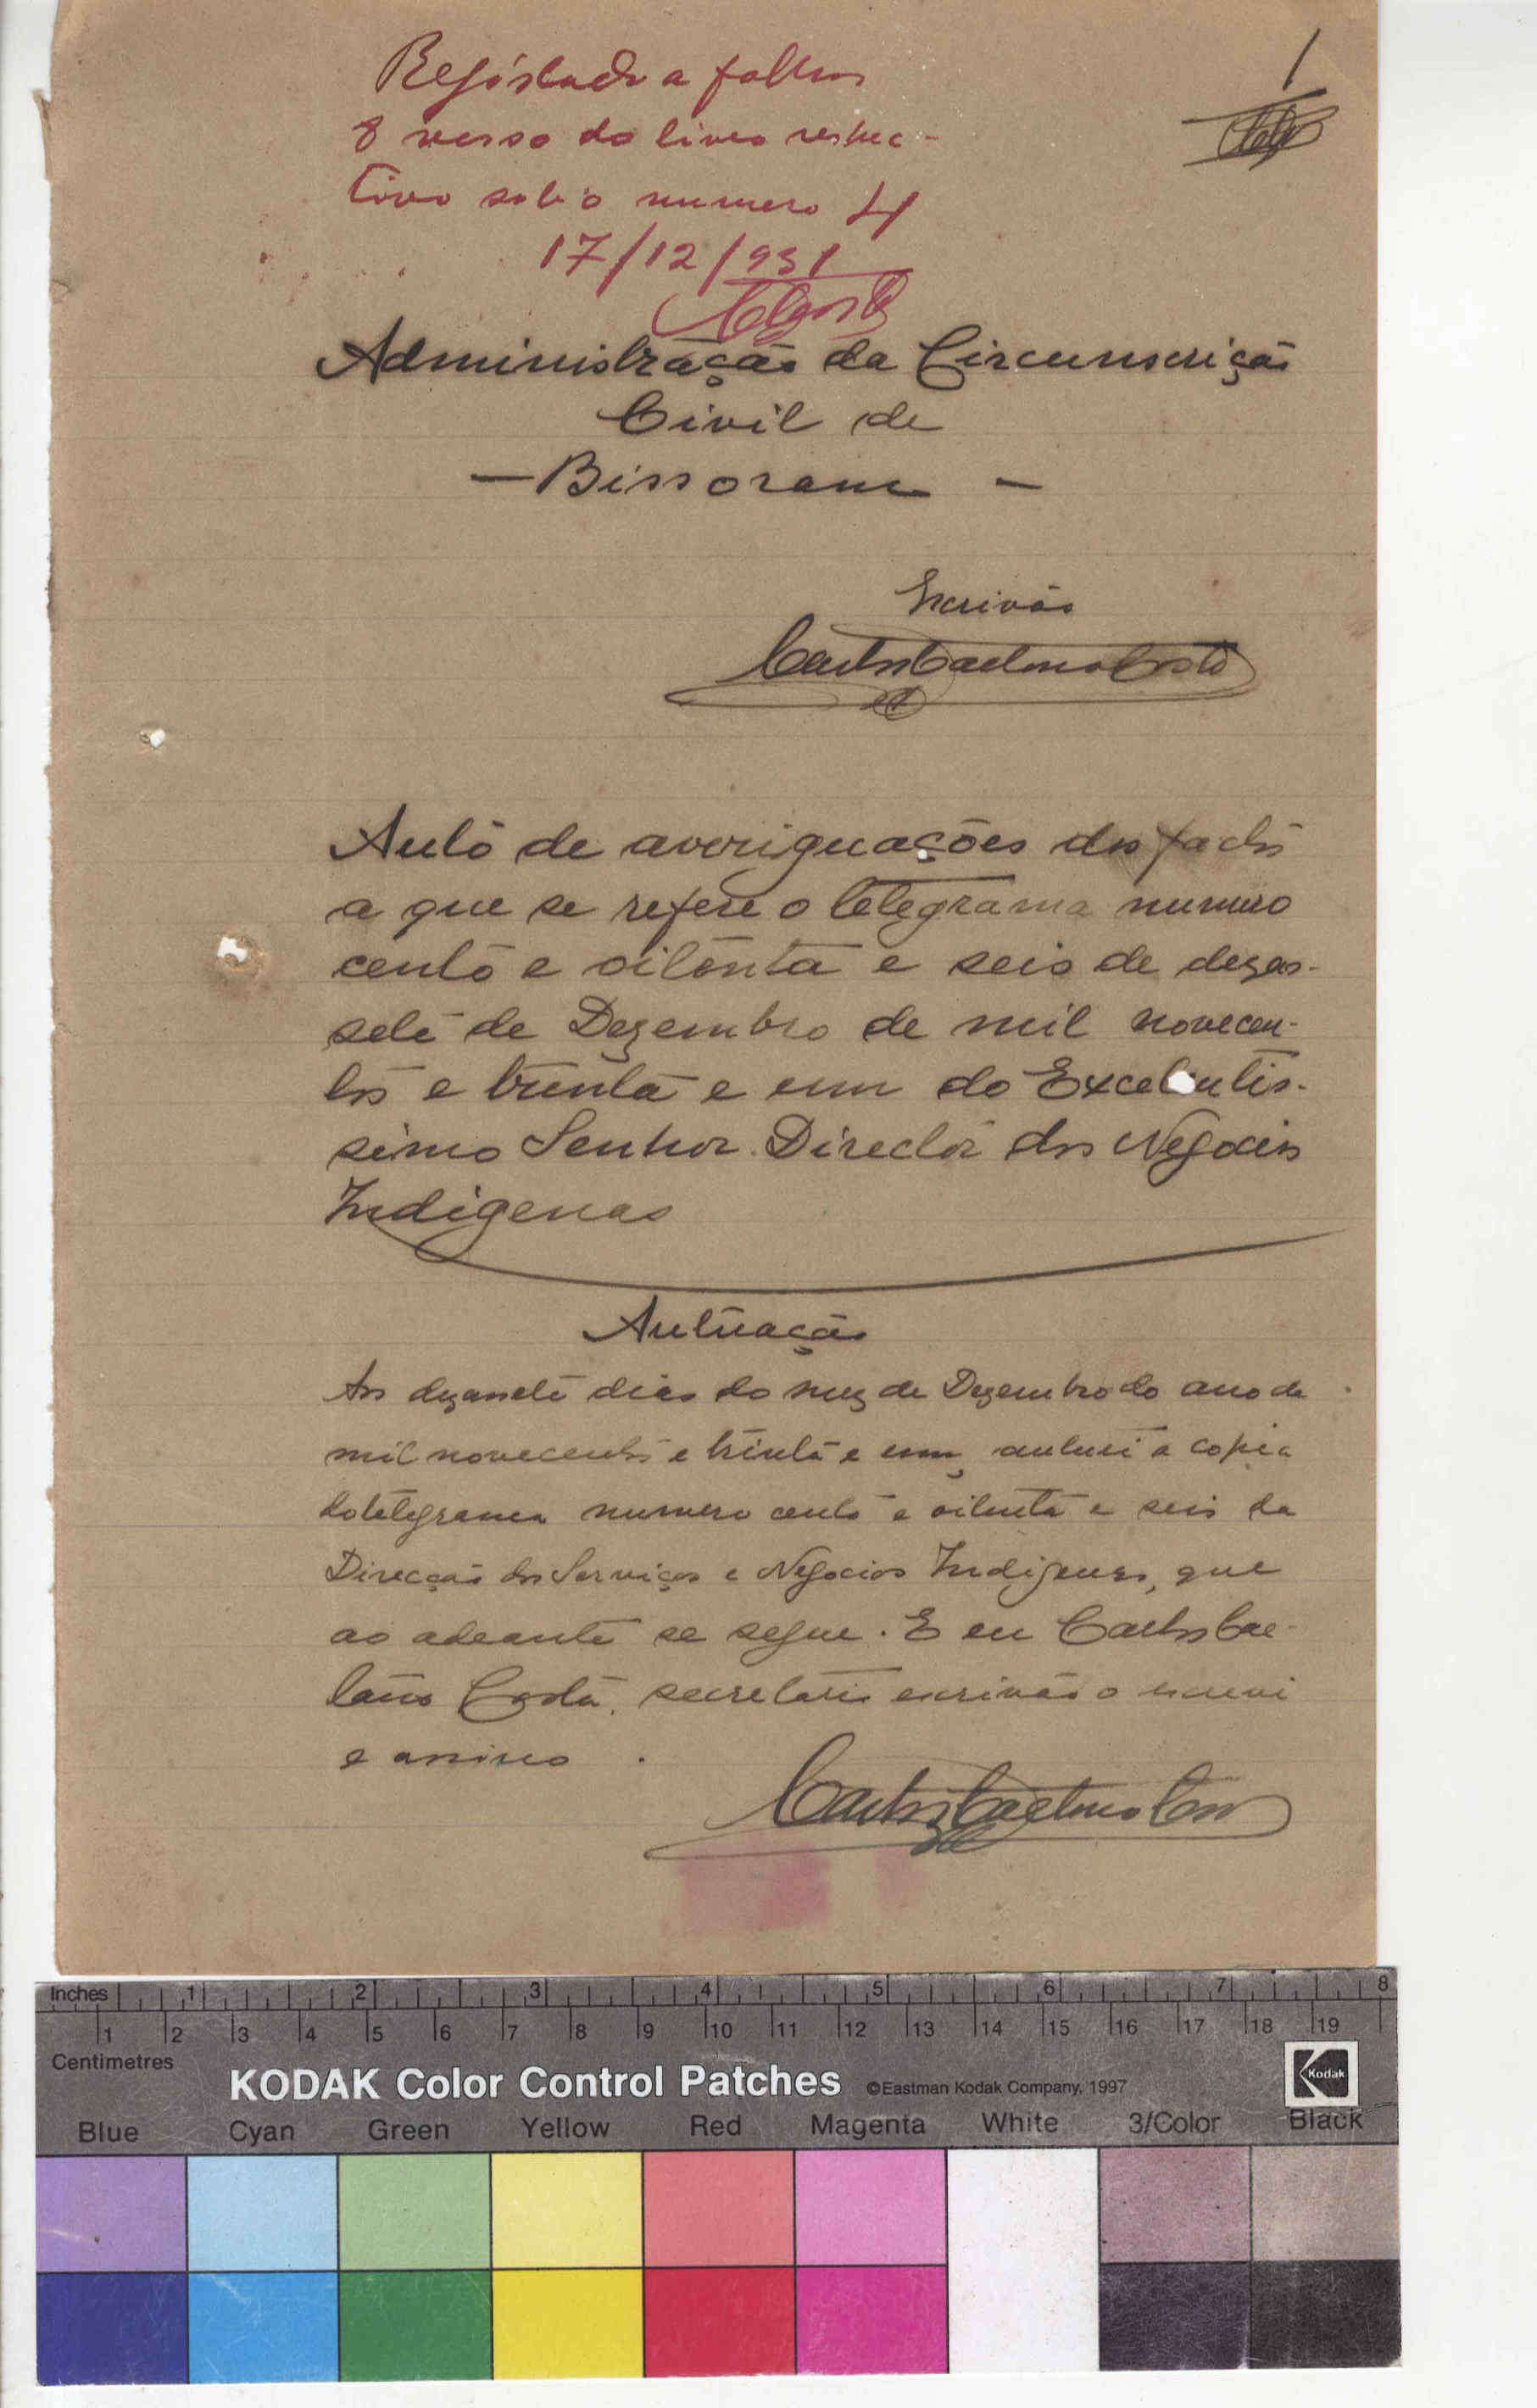 Registado a folhas
8 verso do livro respec-
tivo sob o numero 4
17/12/931
1
Administração da Circunscrição
Civil de
— Bissoram —
Escrivão
Carlos Caetano Costa
Auto de averiguações dos factos
a que se refere o telegrama numero
cento e oitenta e seis de dezas-
sete de Dezembro de mil novecen-
tos e trinta e um do Excelentis-
simo Senhor Director dos Negocios
Indigenas
Autuação
Aos dezasete dias do mez de Dezembro do ano de
mil novecentos e trinta e um, autuei a copia
do telegrama numero cento e oitenta e seis da
Direcção dos Serviços e Negocios Indigenas, que
ao adeante se segue. E eu Carlos Cae-
tano Costa, secretario escrivão o escrevi
e assino.
Carlos Caetano Costa
Inches 1 2 3 4 5 6 7 8
1 2 3 4 5 6 7 8 9 10 11 12 13 14 15 16 17 18 19
Centimetres
KODAK Color Control Patches ©Eastman Kodak Company, 1997 Kodak
Blue Cyan Green Yellow Red Magenta White 3/Color Black